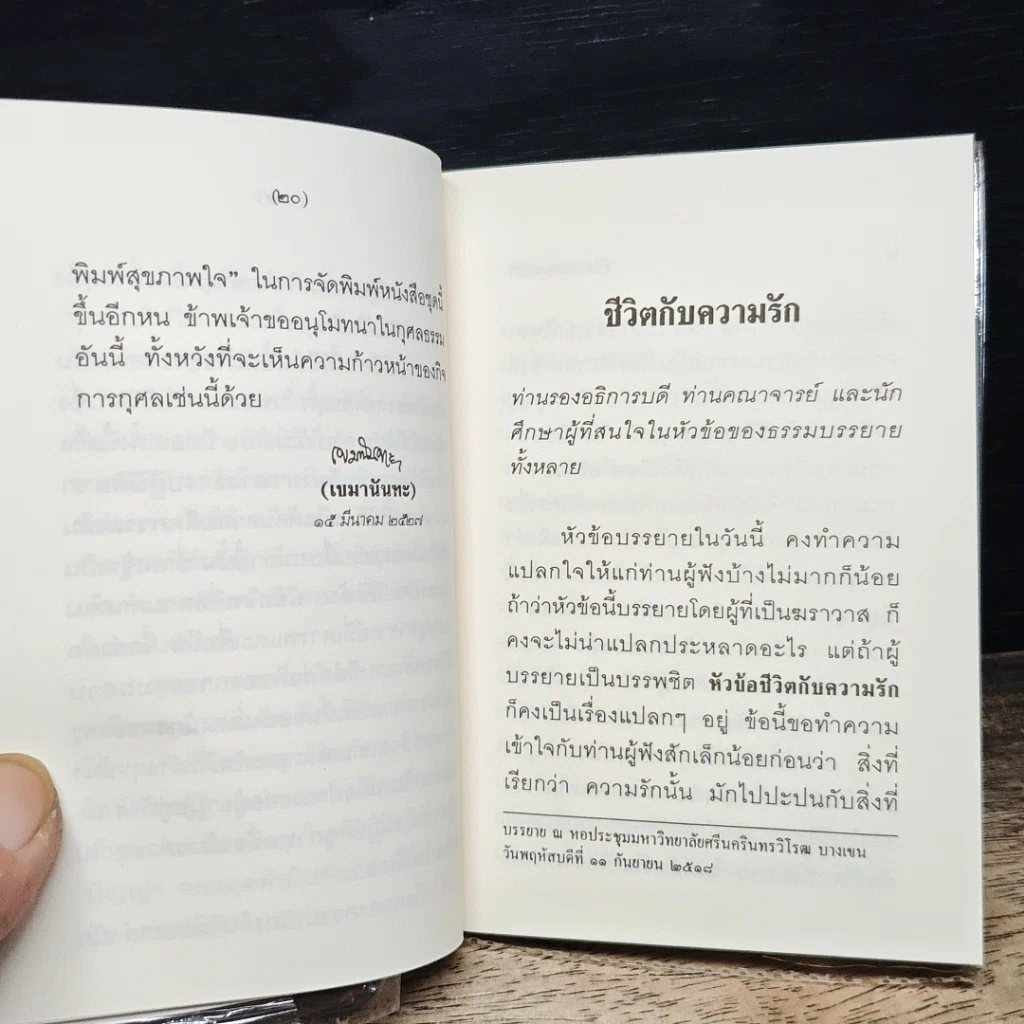 (๒๐)
พิมพ์สุขภาพใจ” ในการจัดพิมพ์หนังสือชุดนี้
ขึ้นอีกหน ข้าพเจ้าขออนุโมทนาในกุศลธรรม
อันนี้ ทั้งหวังที่จะเห็นความก้าวหน้าของกิจ
การกุศลเช่นนี้ด้วย
เขมานันทะ
(เขมานันทะ)
๑๕ มีนาคม ๒๕๒๗
ชีวิตกับความรัก
ท่านรองอธิการบดี ท่านคณาจารย์ และนัก
ศึกษาผู้ที่สนใจในหัวข้อของธรรมบรรยาย
ทั้งหลาย
หัวข้อบรรยายในวันนี้ คงทำความ
แปลกใจให้แก่ท่านผู้ฟังบ้างไม่มากก็น้อย
ถ้าว่าหัวข้อนี้บรรยายโดยผู้ที่เป็นฆราวาส ก็
คงจะไม่น่าแปลกประหลาดอะไร แต่ถ้าผู้
บรรยายเป็นบรรพชิต หัวข้อชีวิตกับความรัก
ก็คงเป็นเรื่องแปลกๆ อยู่ ข้อนี้ขอทำความ
เข้าใจกับท่านผู้ฟังสักเล็กน้อยก่อนว่า สิ่งที่
เรียกว่า ความรักนั้น มักไปปะปนกับสิ่งที่
บรรยาย ณ หอประชุมมหาวิทยาลัยศรีนครินทรวิโรฒ บางเขน
วันพฤหัสบดีที่ ๑๑ กันยายน ๒๕๑๘